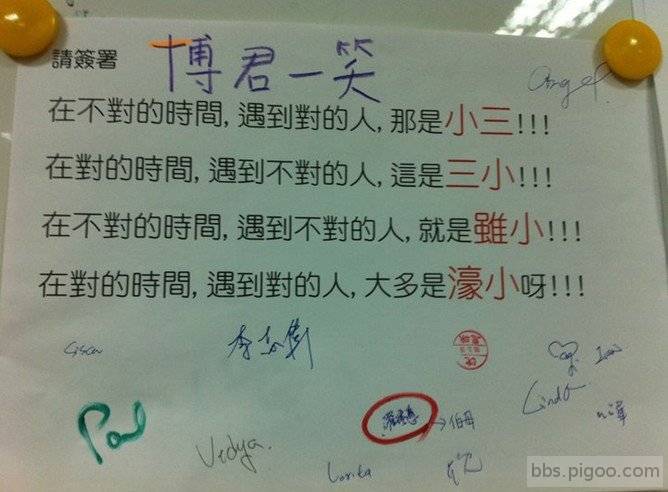 請簽署
博君一笑
Angel
在不對的時間,遇到對的人,那是小三!!!
在對的時間,遇到不對的人,這是三小!!!
在不對的時間,遇到不對的人,就是雖小!!!
在對的時間,遇到對的人,大多是濠小呀!!!
Paul
Vedya.
Lorita
Linda
→伯母
bbs.pigoo.com